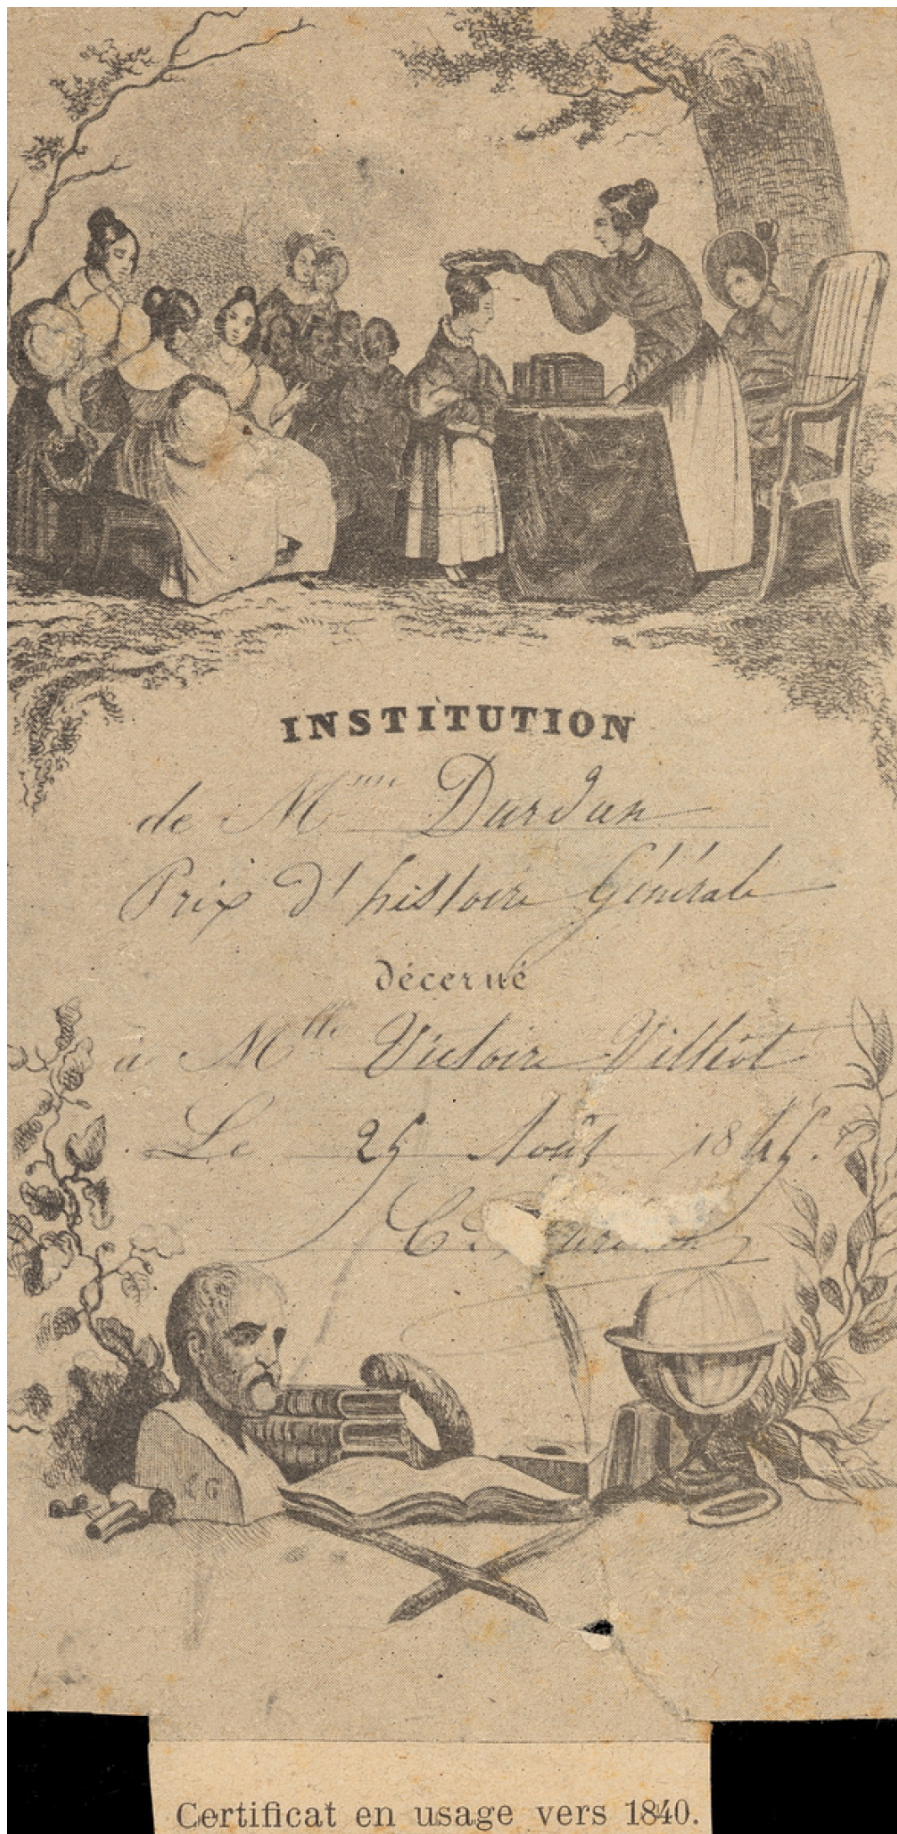 INSTITUTION
de Mme Dardan
Prix d'histoire Générale
décerné
à Mlle Victoire Villiot
Le 25 Août 1845.
C.
Certificat en usage vers 1840.